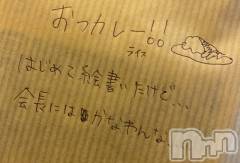 おつカレー!!
ライス
はじめて絵書いたけど...
会長にはかなわんな